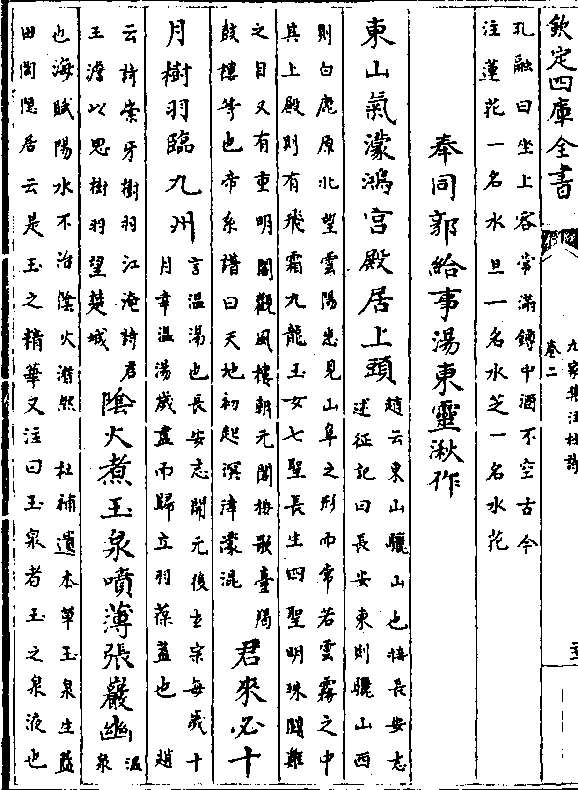 欽定四庫全書
九家集注杜詩
卷二
孔融曰坐上客常滿罇中酒不空古今
注蓮花一名水旦一名水芝一名水花
奉同郭給事湯東靈湫作
東山氣濛鴻宮殿居上頭
趙云東山驪山也按長安志
述征記曰長安東則驪山西
則白鹿原北望雲陽悉見山阜之形而常若雲霧之中
其上殿則有飛霜九龍玉女七聖長生四聖明珠鬬雞
之目又有重明閣觀風樓朝元閣按歌臺羯
鼓樓等也帝系譜曰天地初起溟涬濛混
君來必十
月樹羽臨九州
言温湯也長安志開元後玄宗每歲十
月幸温湯歲盡而歸立羽葆蓋也 趙
云詩崇牙樹羽江淹詩君
王澹以思樹羽望楚城
陰火煮玉泉噴薄張巖幽
温
泉
也海賦陽水不治陰火潛然 杜補遺本草玉泉生藍
田陶隱居云是玉之精華又注曰玉泉者玉之泉液也